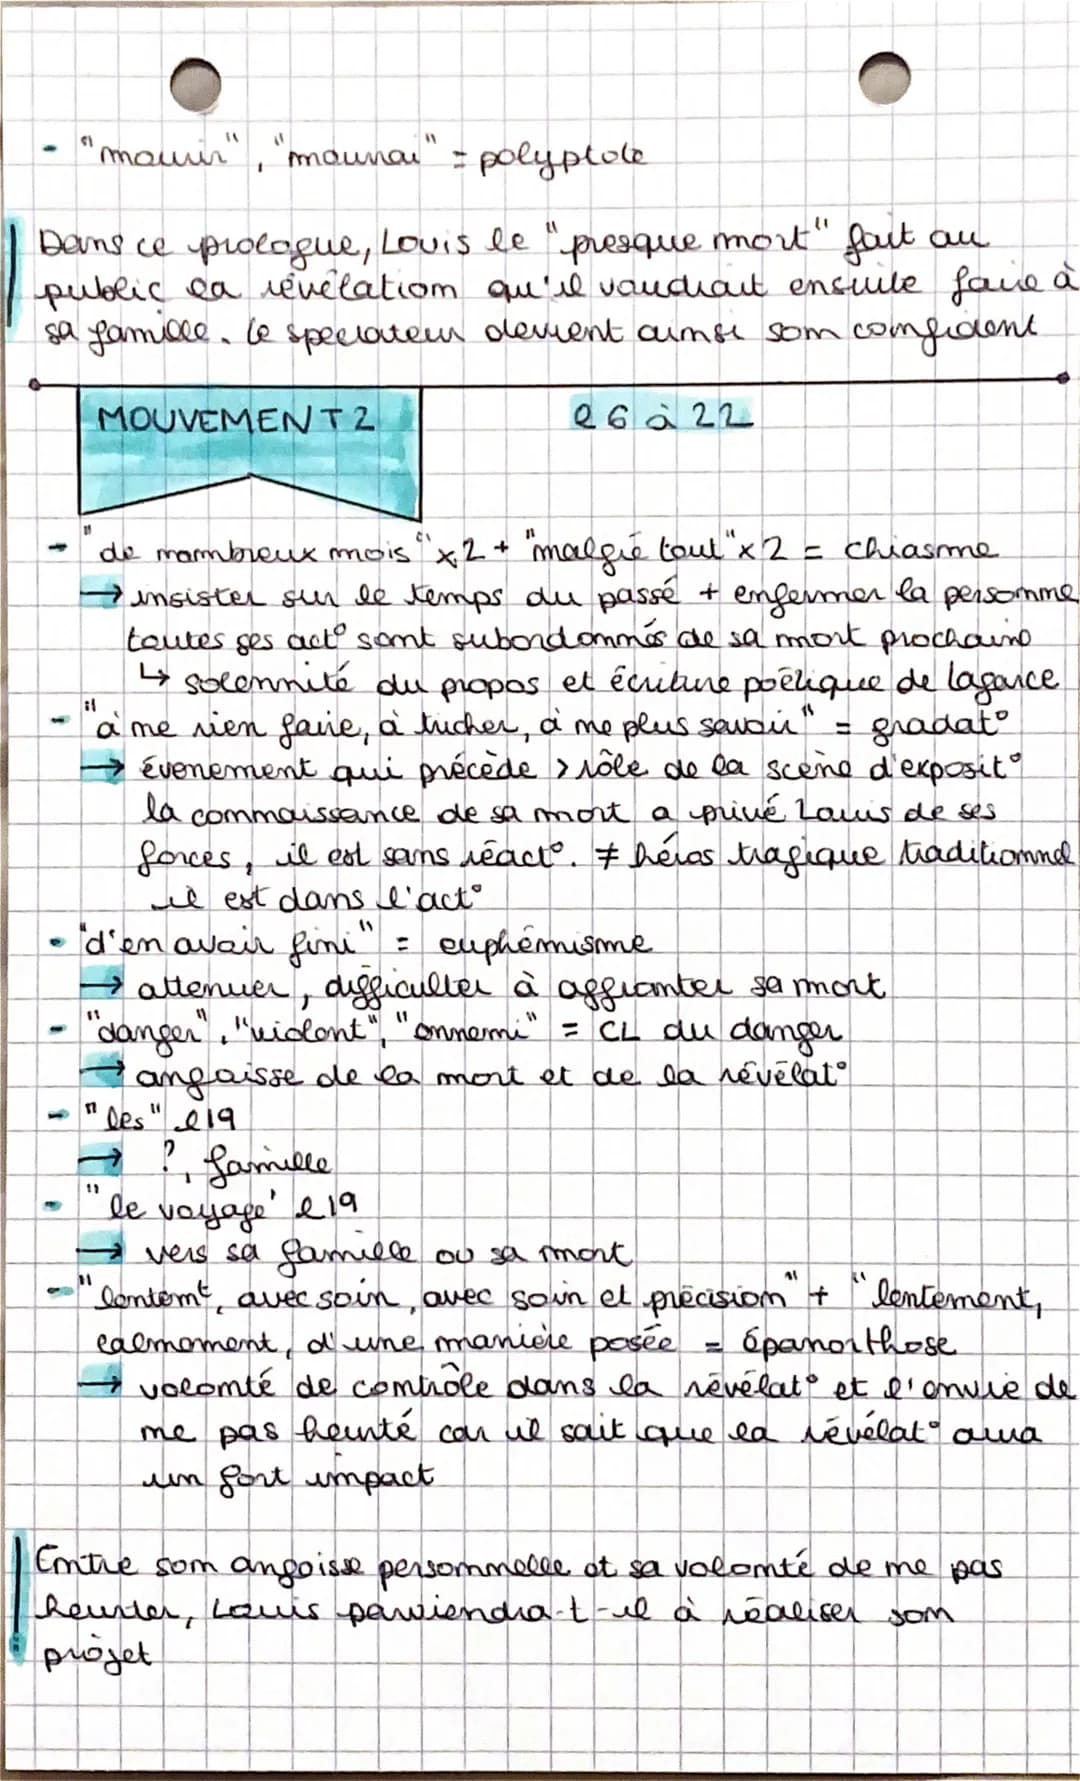 - "mourir", "mourrai" = polyptote
Dans ce prologue, Louis le "presque mort" fait au
public la révélation qu'il voudrait ensuite faire à
sa famille. Le spectateur devient ainsi son confident
MOUVEMENT 2
l 6 à 22
- "de nombreux mois" x2 + "malgré tout" x2 = chiasme
→ insister sur le temps du passé + enfermer la personne,
toutes ses act° sont subordonnés de sa mort prochaine
↳ solennité du propos et écriture poëtique de Lagarce
- "à ne rien faire, à tricher, à ne plus savoir" = gradat°
→ évenement qui précède > rôle de la scène d'exposit°
la connaissance de sa mort a privé Louis de ses
forces, il est sans réact°. ≠ héros tragique traditionnel
il est dans l'act°
- "d'en avoir fini" = euphémisme
→ attenuer, difficulter à affronter sa mort
- "danger", "violent", "ennemi" = CL du danger
→ angoisse de la mort et de la révélat°
- "les" l19
→ ?, famille
- "le voyage' l19
→ vers sa famille ou sa mort
- "lentemt, avec soin, avec soin et précision" + "lentement,
calmement, d'une manière posée = épanorthose
→ volonté de contrôle dans la révélat° et l'envie de
ne pas heurté car il sait que la révélat° aura
un fort impact
Entre son angoisse personnelle et sa volonté de ne pas
heurter, Louis parviendra-t-il à réaliser son
projet